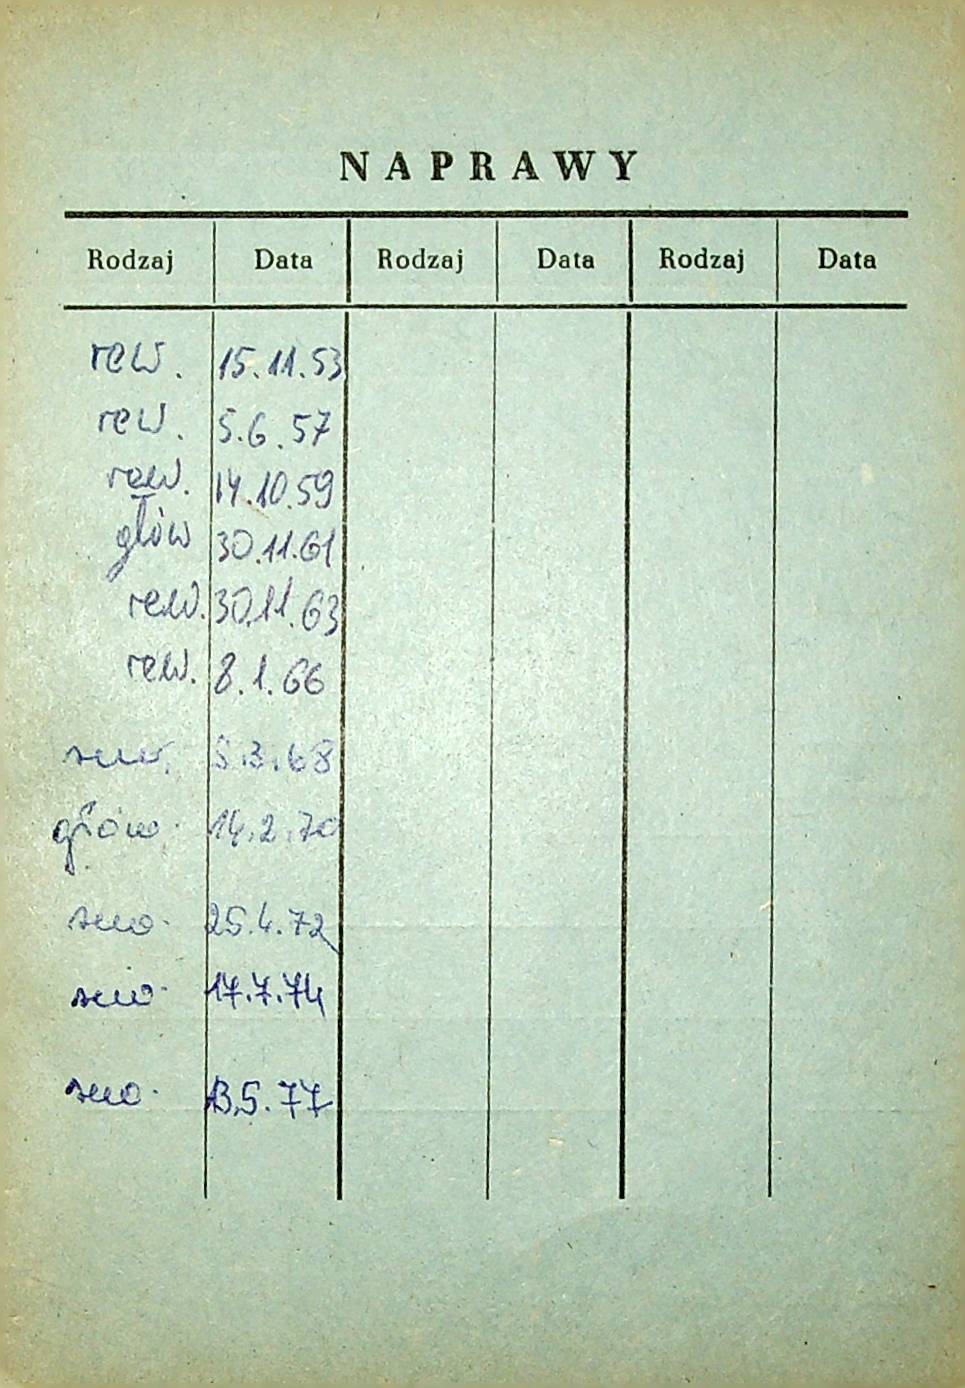 NAPRAWY
Rodzaj Data Rodzaj Data Rodzaj Data
rew. 15.11.53
rew. 5.6.57
rew. 14.10.59
głów 30.11.61
rew. 30.11.63
rew. 8.1.66
rew. 5.3.68
głów. 14.2.70
rew. 25.4.72
rew. 17.7.74
rew. 13.5.77